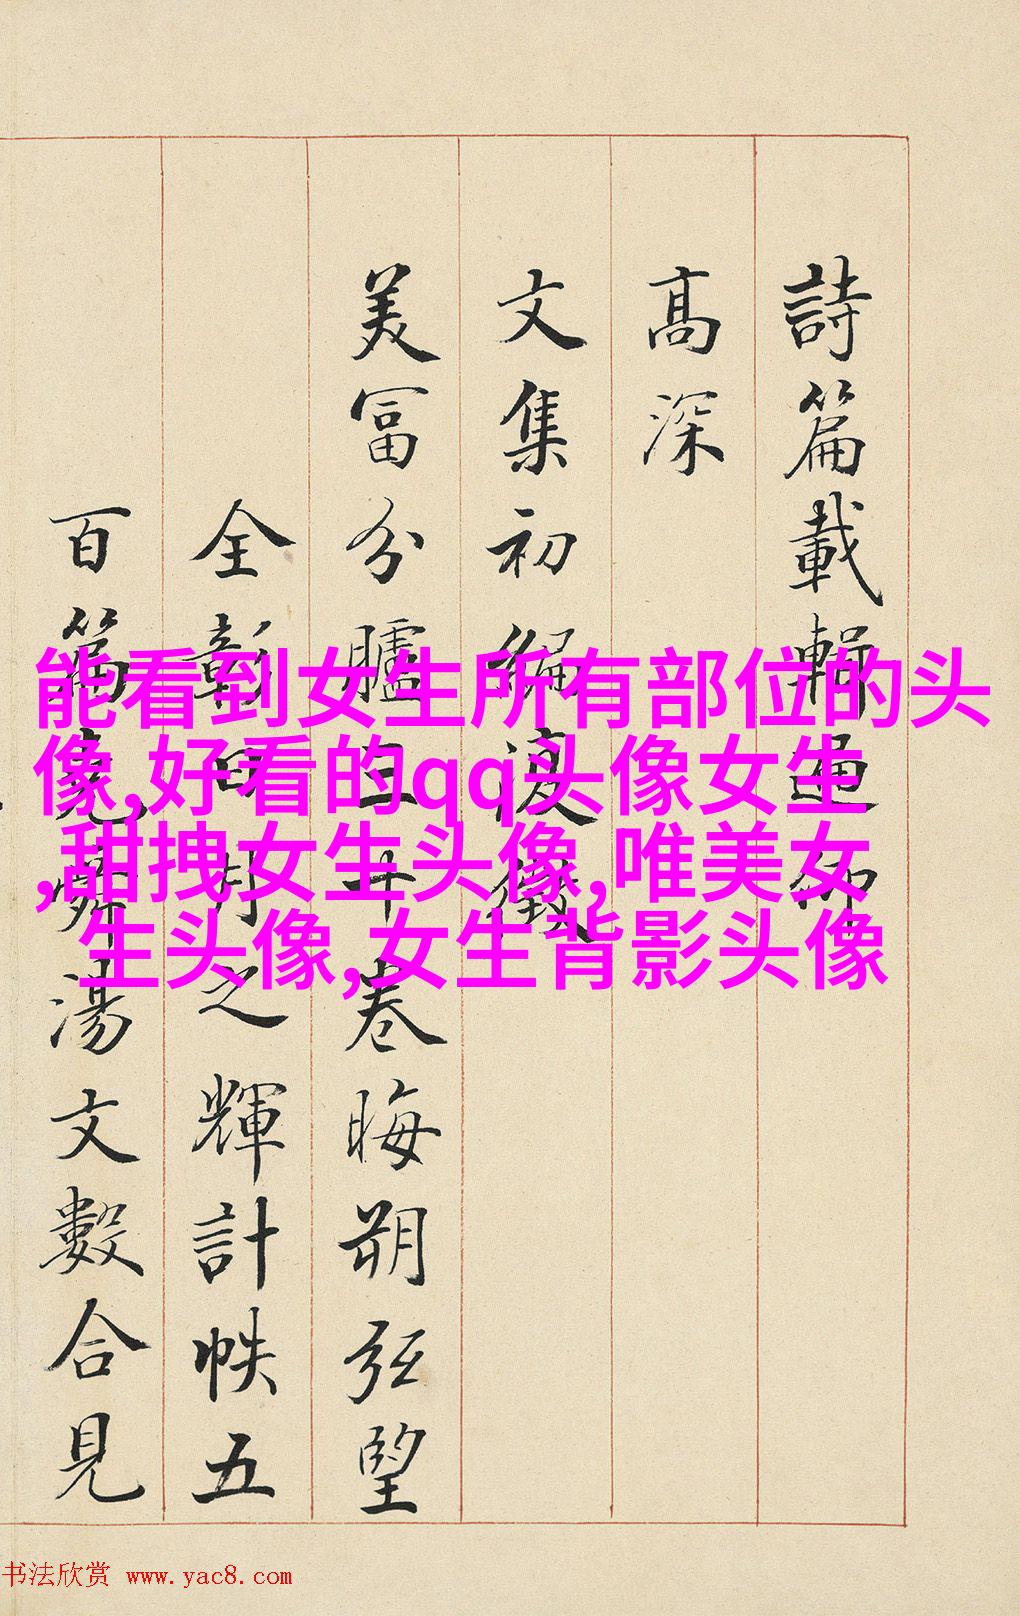 詩篇載輯連仰
高深
文集初編復徵
美冨分臚三廾卷晦朔弦望
全彰日月之輝計帙五
百篇堯舜湯文數合見
能看到女生所有部位的头
像,好看的qq头像女生
,甜拽女生头像,唯美女
生头像,女生背影头像
书法欣赏 www.yac8.com